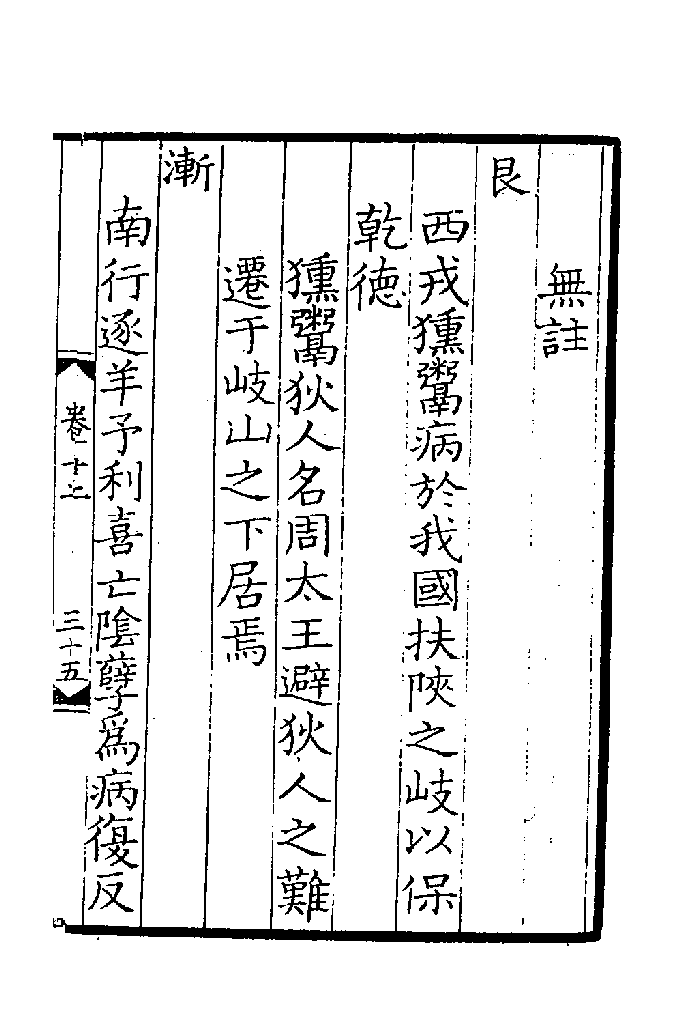 無註
艮
西戎獯鬻病於我國扶陜之岐以保
乾徳
獯鬻狄人名周太王避狄人之難
遷于岐山之下居焉
漸
南行逐羊予利喜亡隂孽爲病復反
卷十上
三十五